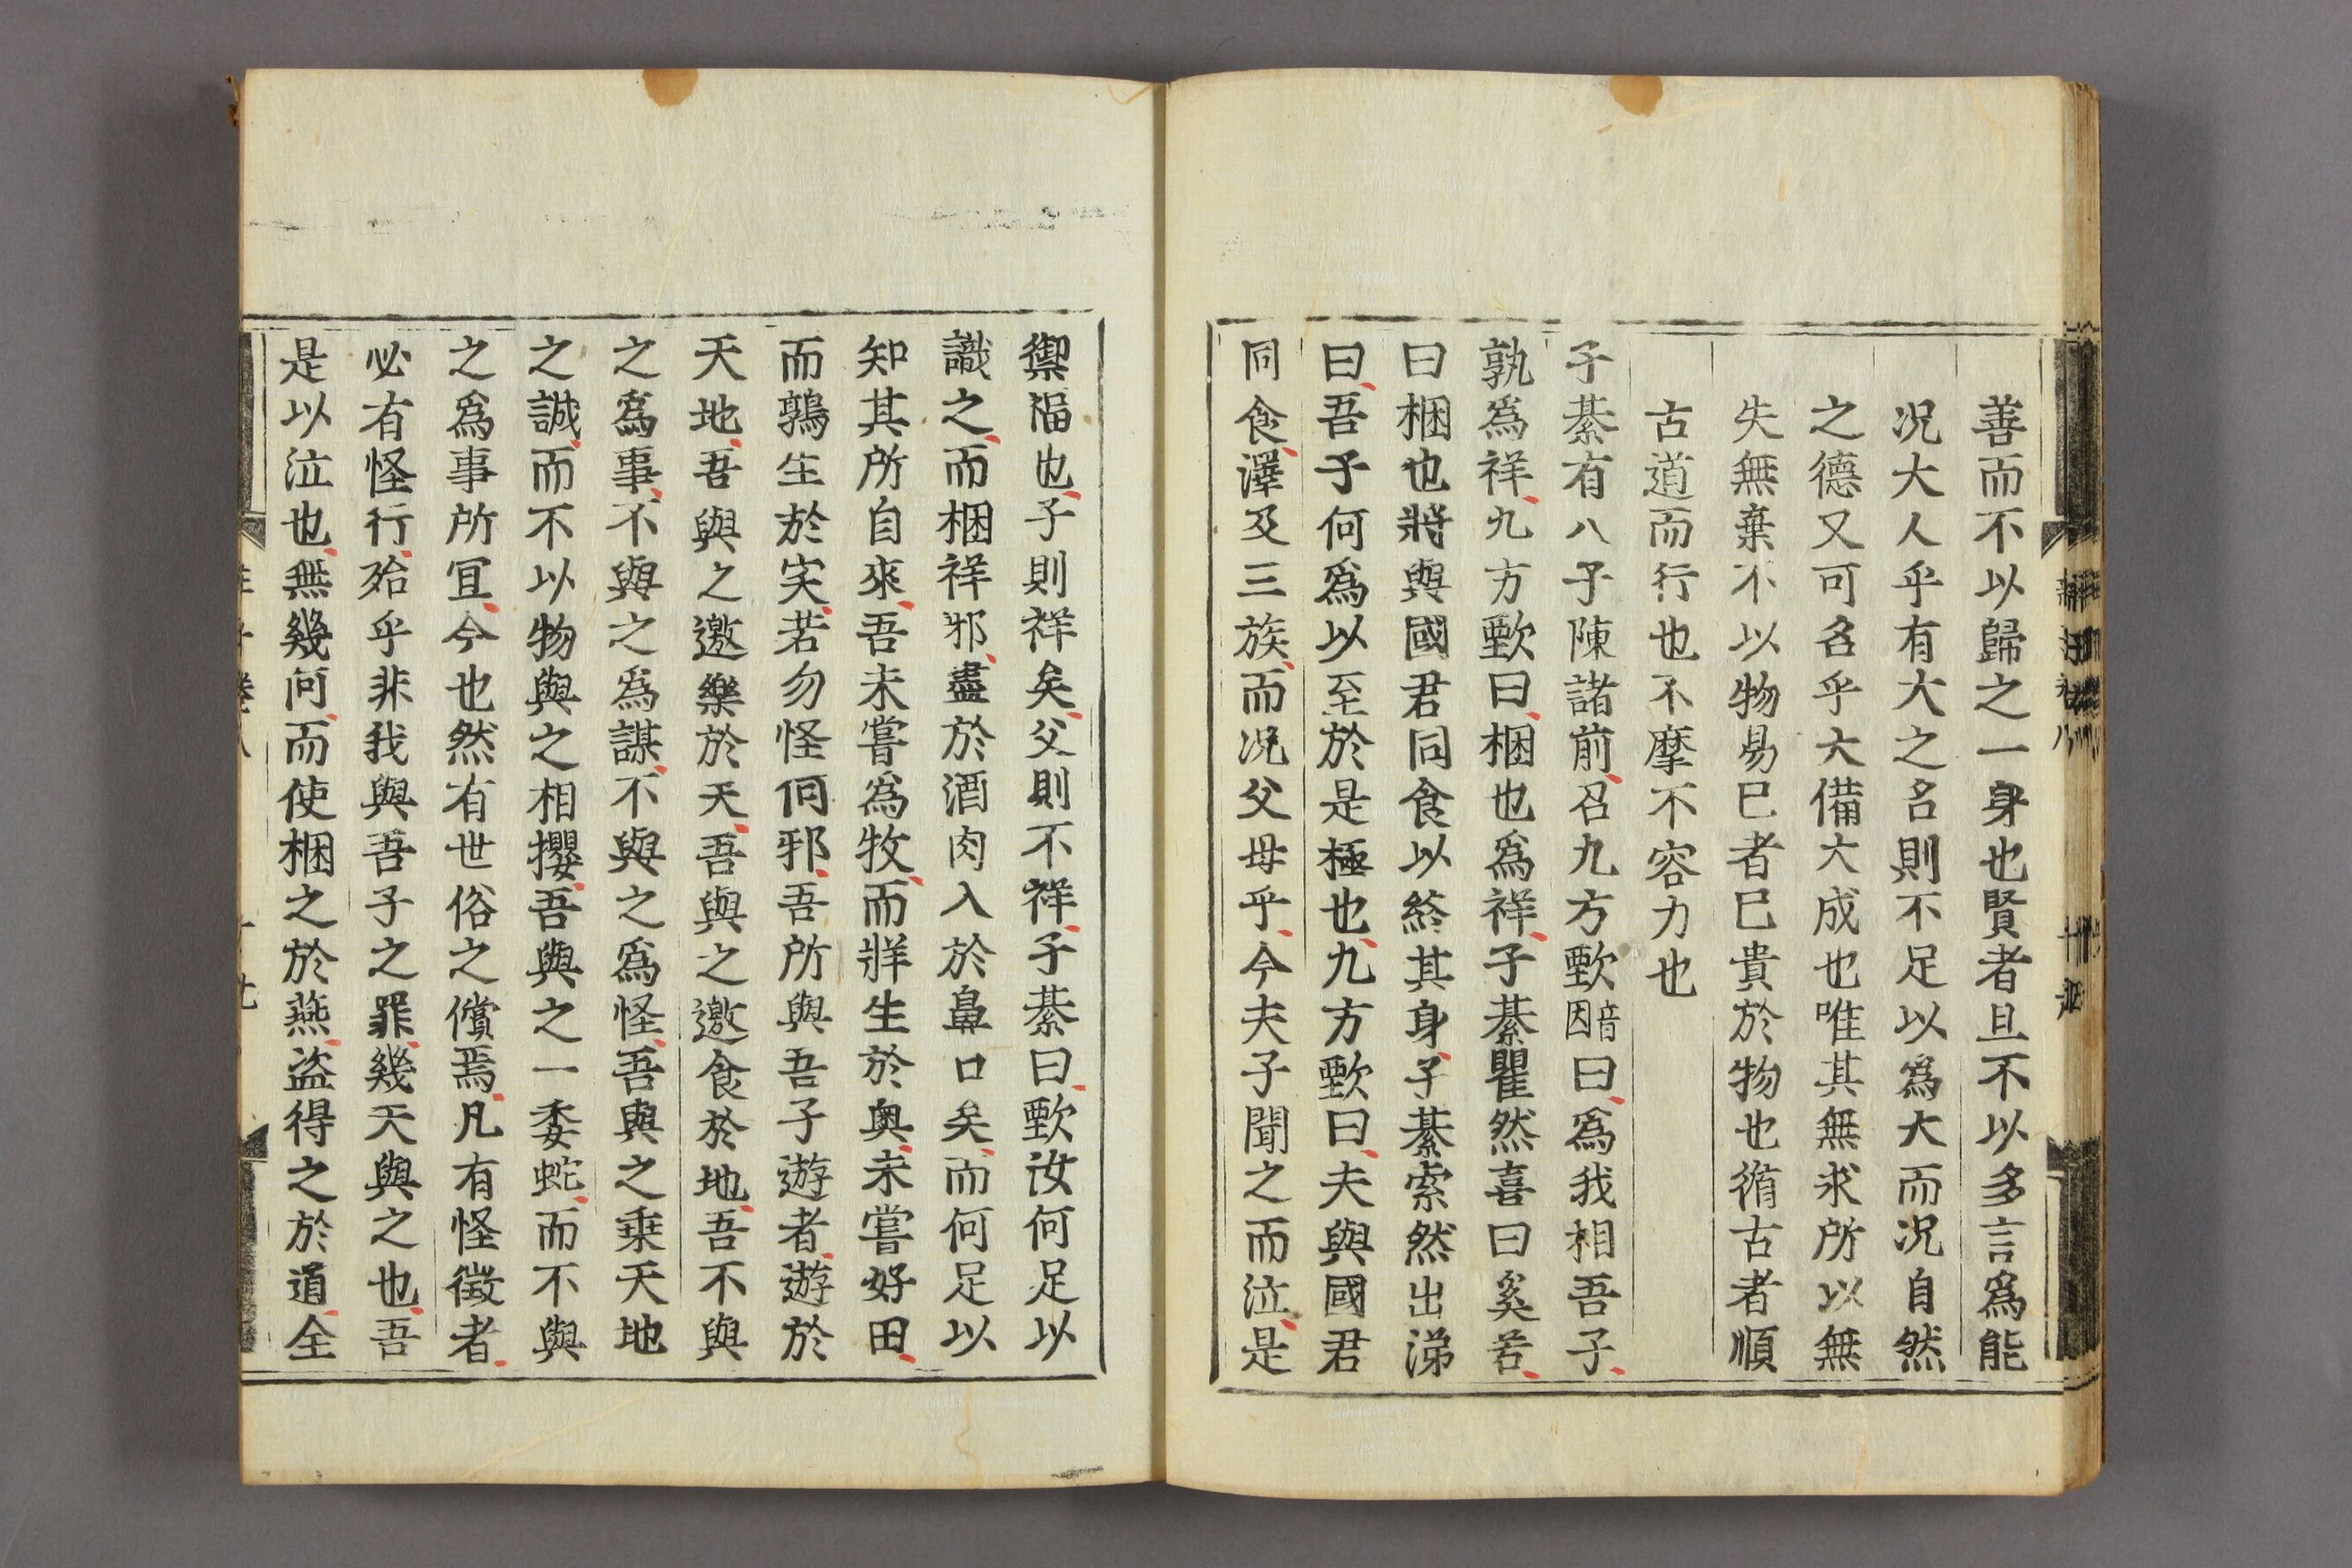 善而不以歸之一身也賢者且不以多言爲能
况大人乎有大之名則不足以爲大而况自然
之德又可名乎大備大成也唯其無求所以無
失無棄不以物易巳者巳貴於物也循古者順
古道而行也不摩不容力也
子綦有八子陳諸前召九方歅音因曰爲我相吾子
孰爲祥九方歅曰梱也爲祥子綦瞿然喜曰奚若
曰梱也將與國君同食以終其身子綦索然出涕
曰吾子何爲以至於是極也九方歅曰夫與國君
同食澤及三族而况父母乎今夫子聞之而泣是
禦福也子則祥矣父則不祥子綦曰歅汝何足以
識之而梱祥邪盡於酒肉入於鼻口矣而何足以
知其所自來吾未嘗爲牧而牂生於奥未嘗好田
而鶉生於宎若勿怪何邪吾所與吾子遊者遊於
天地吾與之邀樂於天吾與之邀食於地吾不與
之爲事不與之爲謀不與之爲怪吾與之乗天地
之誠而不以物與之相攖吾與之一委蛇而不與
之爲事所冝今也然有世俗之償焉凡有怪徵者
必有怪行殆乎非我與吾子之罪幾天與之也吾
是以泣也無幾何而使梱之於燕盜得之於道全